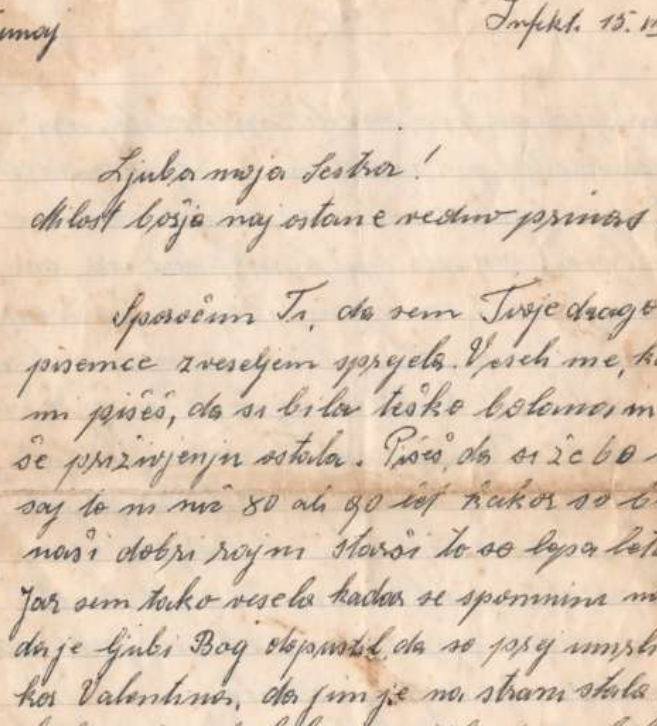 Ljuba moja Sestra!
Milost božja naj ostane vedno prinas
Sporočim Ti, da sem Tvoje drago
pisemce z veseljem sprejela. Veseli me,
mi pišeš, da si bila teško bolana in
še pri življenju ostala. Pišeš, da si že 60
saj to ni nič 80 ali 90 let kakor so b
naši dobri rajni starši to so lepa leta
Jaz sem tako vesela kadar se spomnim
da je ljubi Bog dopustil, da so prej umrli
kor Valentina, da jim je na strani stala